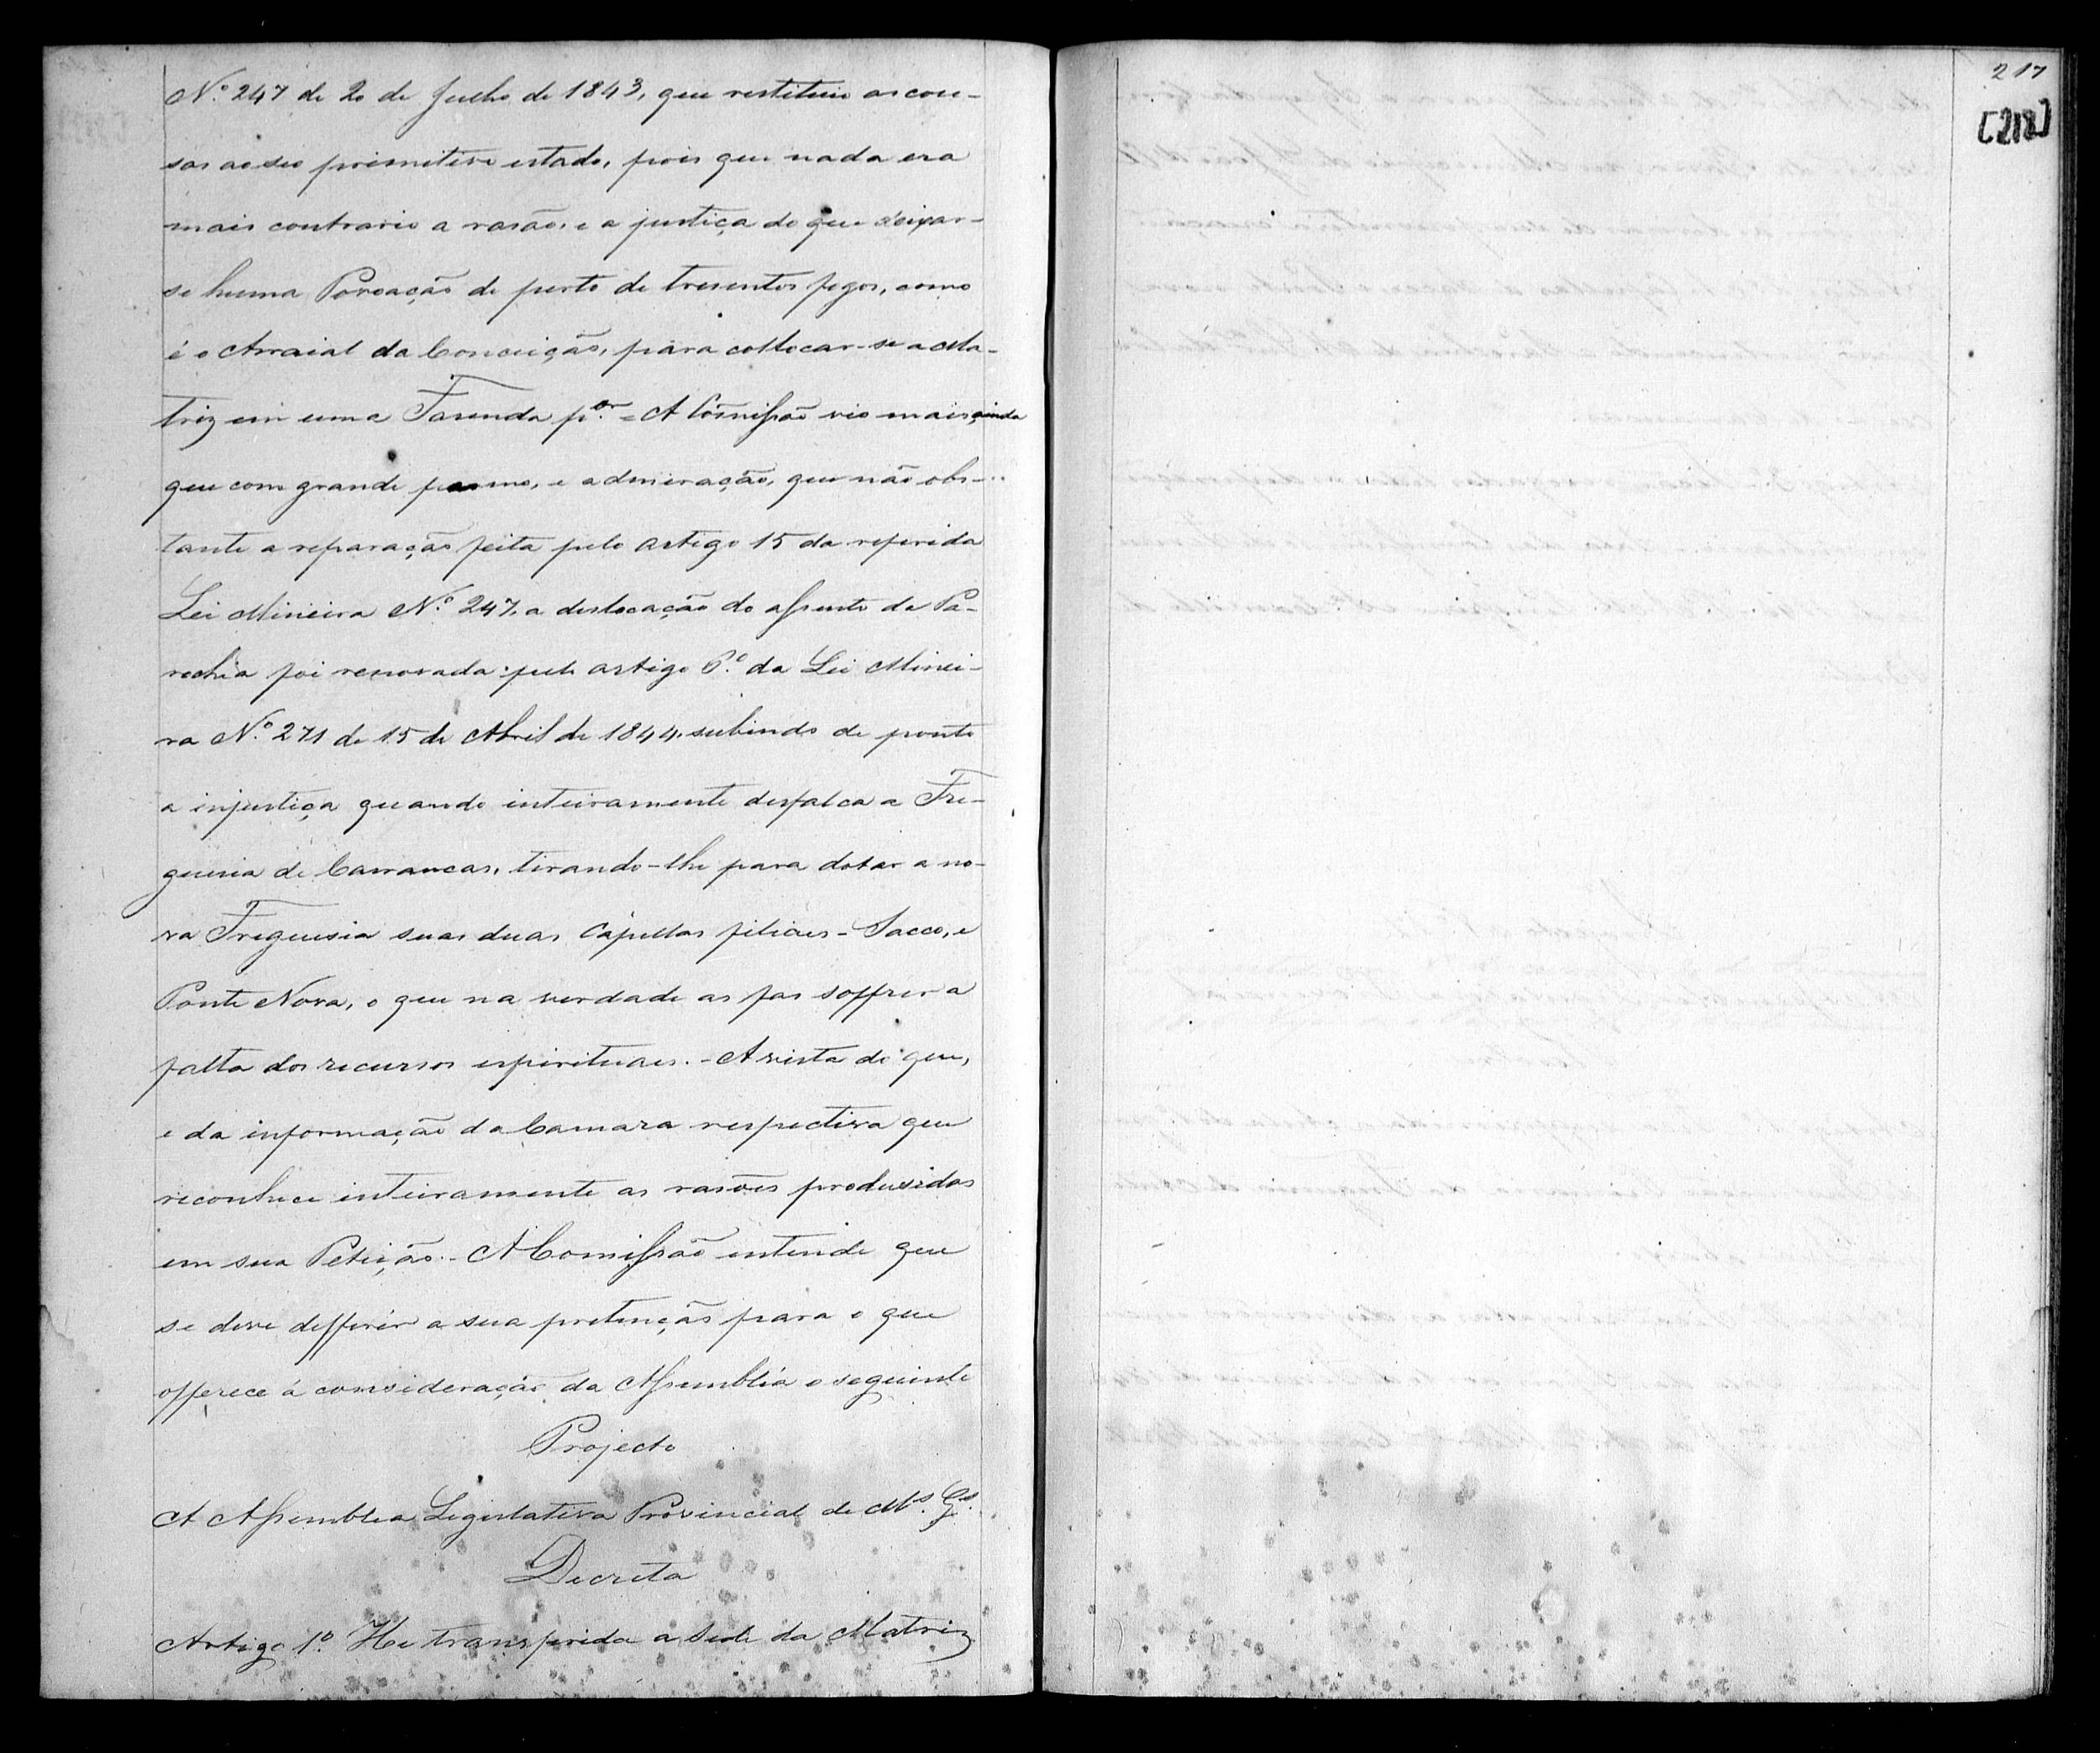 N.º 247 de 20 de Julho de 1843, que restituio as cou-
sas ao seo primitivo estado, pois que nada era
mais contrario a rasão, e a justiça do que deixar-
se huma Povoação de perto de tresentos fogos, como
é o Arraial da Conceição, para collocar-se a Ma-
triz em uma Fasenda p.ar = A Cõmissão vio mais ainda
que com grande pasmo, e admiração, que não obs-
tante a reparação feita pelo artigo 15 da referida
Lei Mineira N.º 247, a deslocação do assento da Pa-
rochia foi renovada pelo artigo 6.º da Lei Minei-
ra N.º 271 de 15 de Abril de 1844, subindo de ponto
a injustiça quando inteiramente desfalca a Fre-
guesia de Carrancas, tirando-lhe para dotar a no-
va Freguesia suas duas Capellas filiaes - Sacco, e
Ponte Nova, o que na verdade as fas soffrer a
falta dos recursos espirituaes. - A vista do que,
e da informação da Camara respectiva que
reconhece inteiramente as rasões produsidas
em sua Petição. - A Comissão entende que
se deve defferir a sua pretenção para o que
offerece á consideração da Assembléa o seguinte
Projecto
A Assemblea Legislativa Provincial de M.s G.s
Decreta
Artigo 1.º He transferida a Sede da Matriz
217
[218]